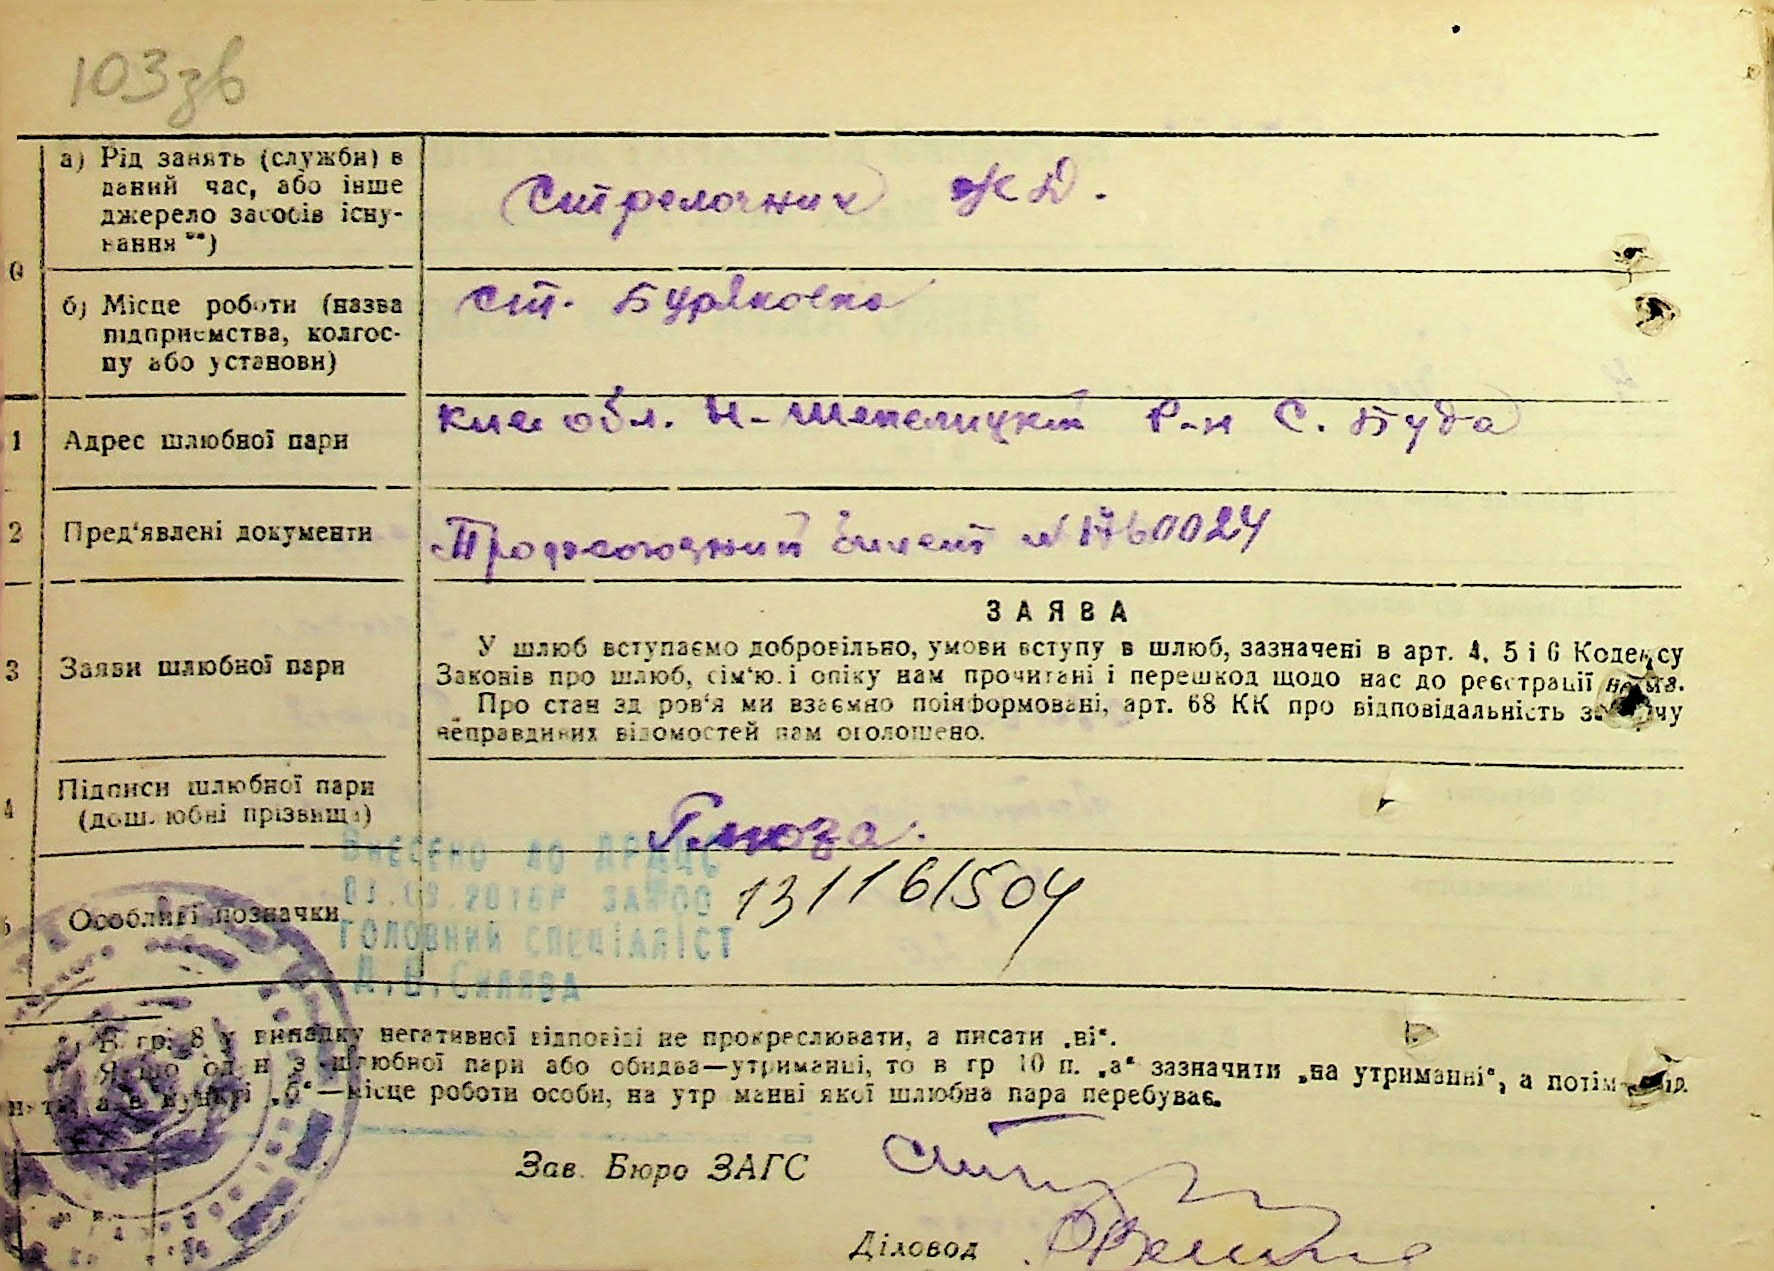 103зв
а) Рід занять (служби) в
даний час, або інше
джерело засобів існу-
вання **)
Стрелочник ЖД.
0
б) Місце роботи (назва
підприємства, колгос-
пу або установи)
ст. Буряковка
1
Адрес шлюбної пари
Киев обл. Н-Шепелицкий Р-н С. Буда
2
Пред'явлені документи
Профсоюзний билет №
3
Заяви шлюбної пари
ЗАЯВА
У шлюб вступаємо добровільно, умови вступу в шлюб, зазначені в арт. 4, 5 і 6 Кодексу
Законів про шлюб, сім'ю і опіку нам прочитані і перешкод щодо нас до реєстрації нема.
Про стан здоров'я ми взаємно поінформовані, арт. 68 КК про відповідальність за дачу
неправдивих відомостей нам оголошено.
4
Підписи шлюбної пари
(дошлюбні прізвища)
Глюза.
Внесено до ДРАЦС
01.03.2016р за №00
13116/504
Особливі позначки
головний спеціаліст
*) В гр. 8 у випадку негативної відповіді не прокреслювати, а писати „ні“.
Якщо один з шлюбної пари або обидва—утриманці, то в гр 10 п. „а“ зазначити „на утриманні“, а потім
в пункті „б“—місце роботи особи, на утриманні якої шлюбна пара перебуває.
Зав. Бюро ЗАГС
Діловод